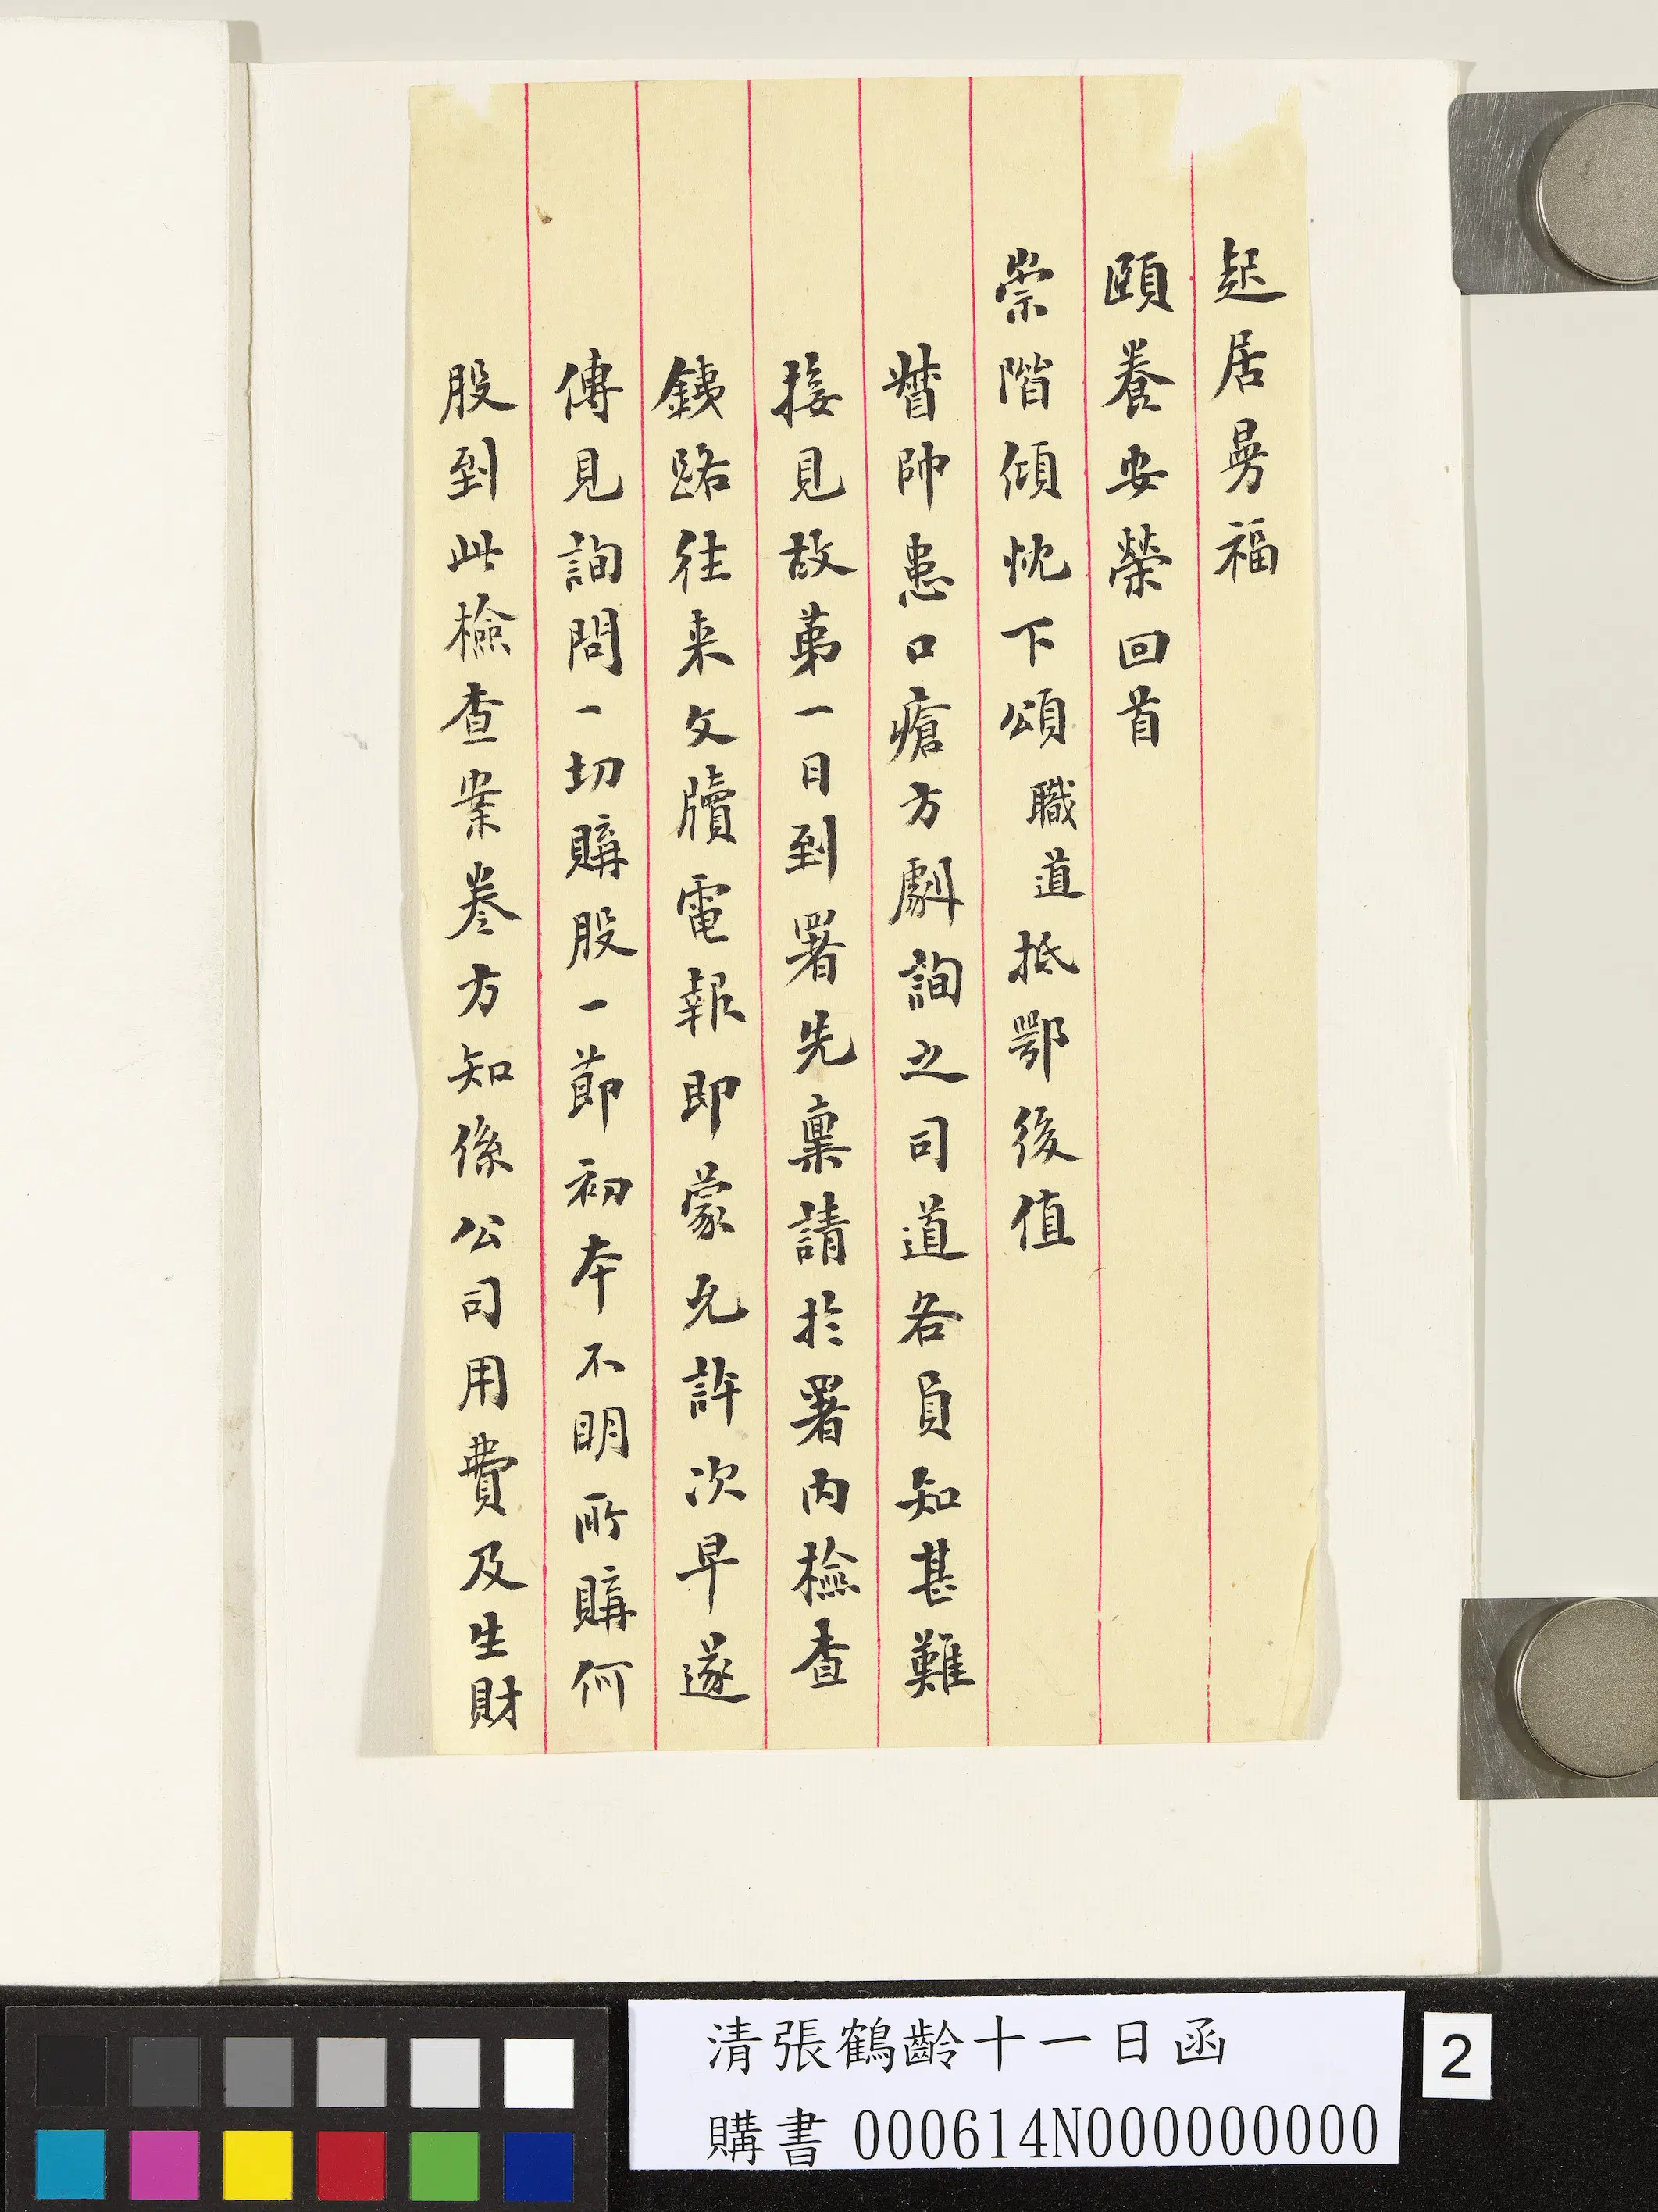 起居昜福
頤養安榮回首
崇階傾忱下頌職道抵鄂後值
督帥患口瘡方劇詢之司道各員知甚難
接見故苐一日到署先稟請於署内檢查
銕路往来文牘電報即蒙允許次早遂
傳見詢問一切購股一節初本不明所購何
股到此檢查案卷方知係公司用費及生財
清張鶴齡十一日函
購書 000614N000000000
2